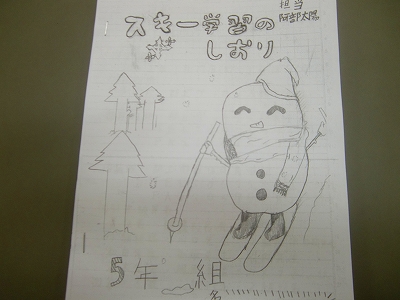 スキー学習の
しおり
担当
阿部太陽
5年 組
名